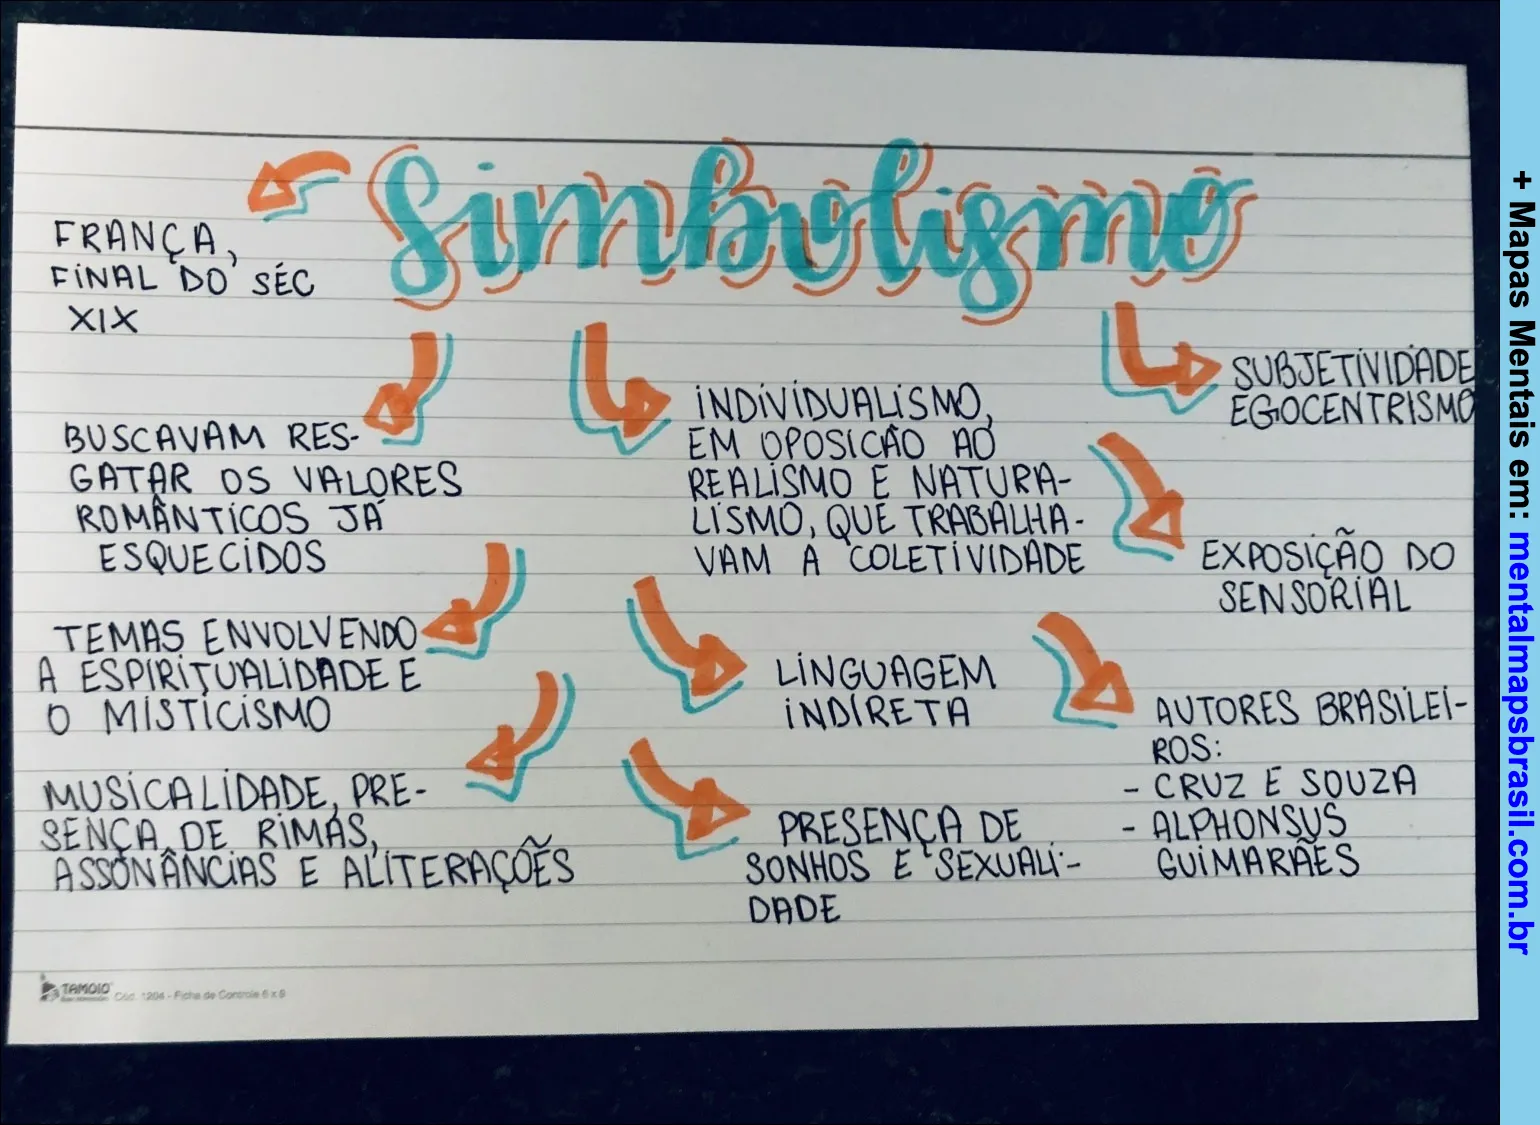 Simbolismo
FRANÇA,
FINAL DO SÉC
XIX
BUSCAVAM RES-
GATAR OS VALORES
ROMÂNTICOS JÁ
ESQUECIDOS
TEMAS ENVOLVENDO
A ESPIRITUALIDADE E
O MISTICISMO
MUSICALIDADE, PRE-
SENÇA DE RIMAS,
ASSONÂNCIAS E ALITERAÇÕES
INDIVIDUALISMO,
EM OPOSICÃO AO
REALISMO E NATURA-
LISMO, QUE TRABALHA-
VAM A COLETIVIDADE
LINGUAGEM
INDIRETA
PRESENÇA DE
SONHOS E SEXUALI-
DADE
SUBJETIVIDADE
EGOCENTRISMO
EXPOSIÇÃO DO
SENSORIAL
AUTORES BRASILEI-
ROS:
- CRUZ E SOUZA
- ALPHONSUS
GUIMARÃES
TAMOIO
Cód. 1204 - Ficha de Controle 6 x 9
+ Mapas Mentais em: mentalmapsbrasil.com.br